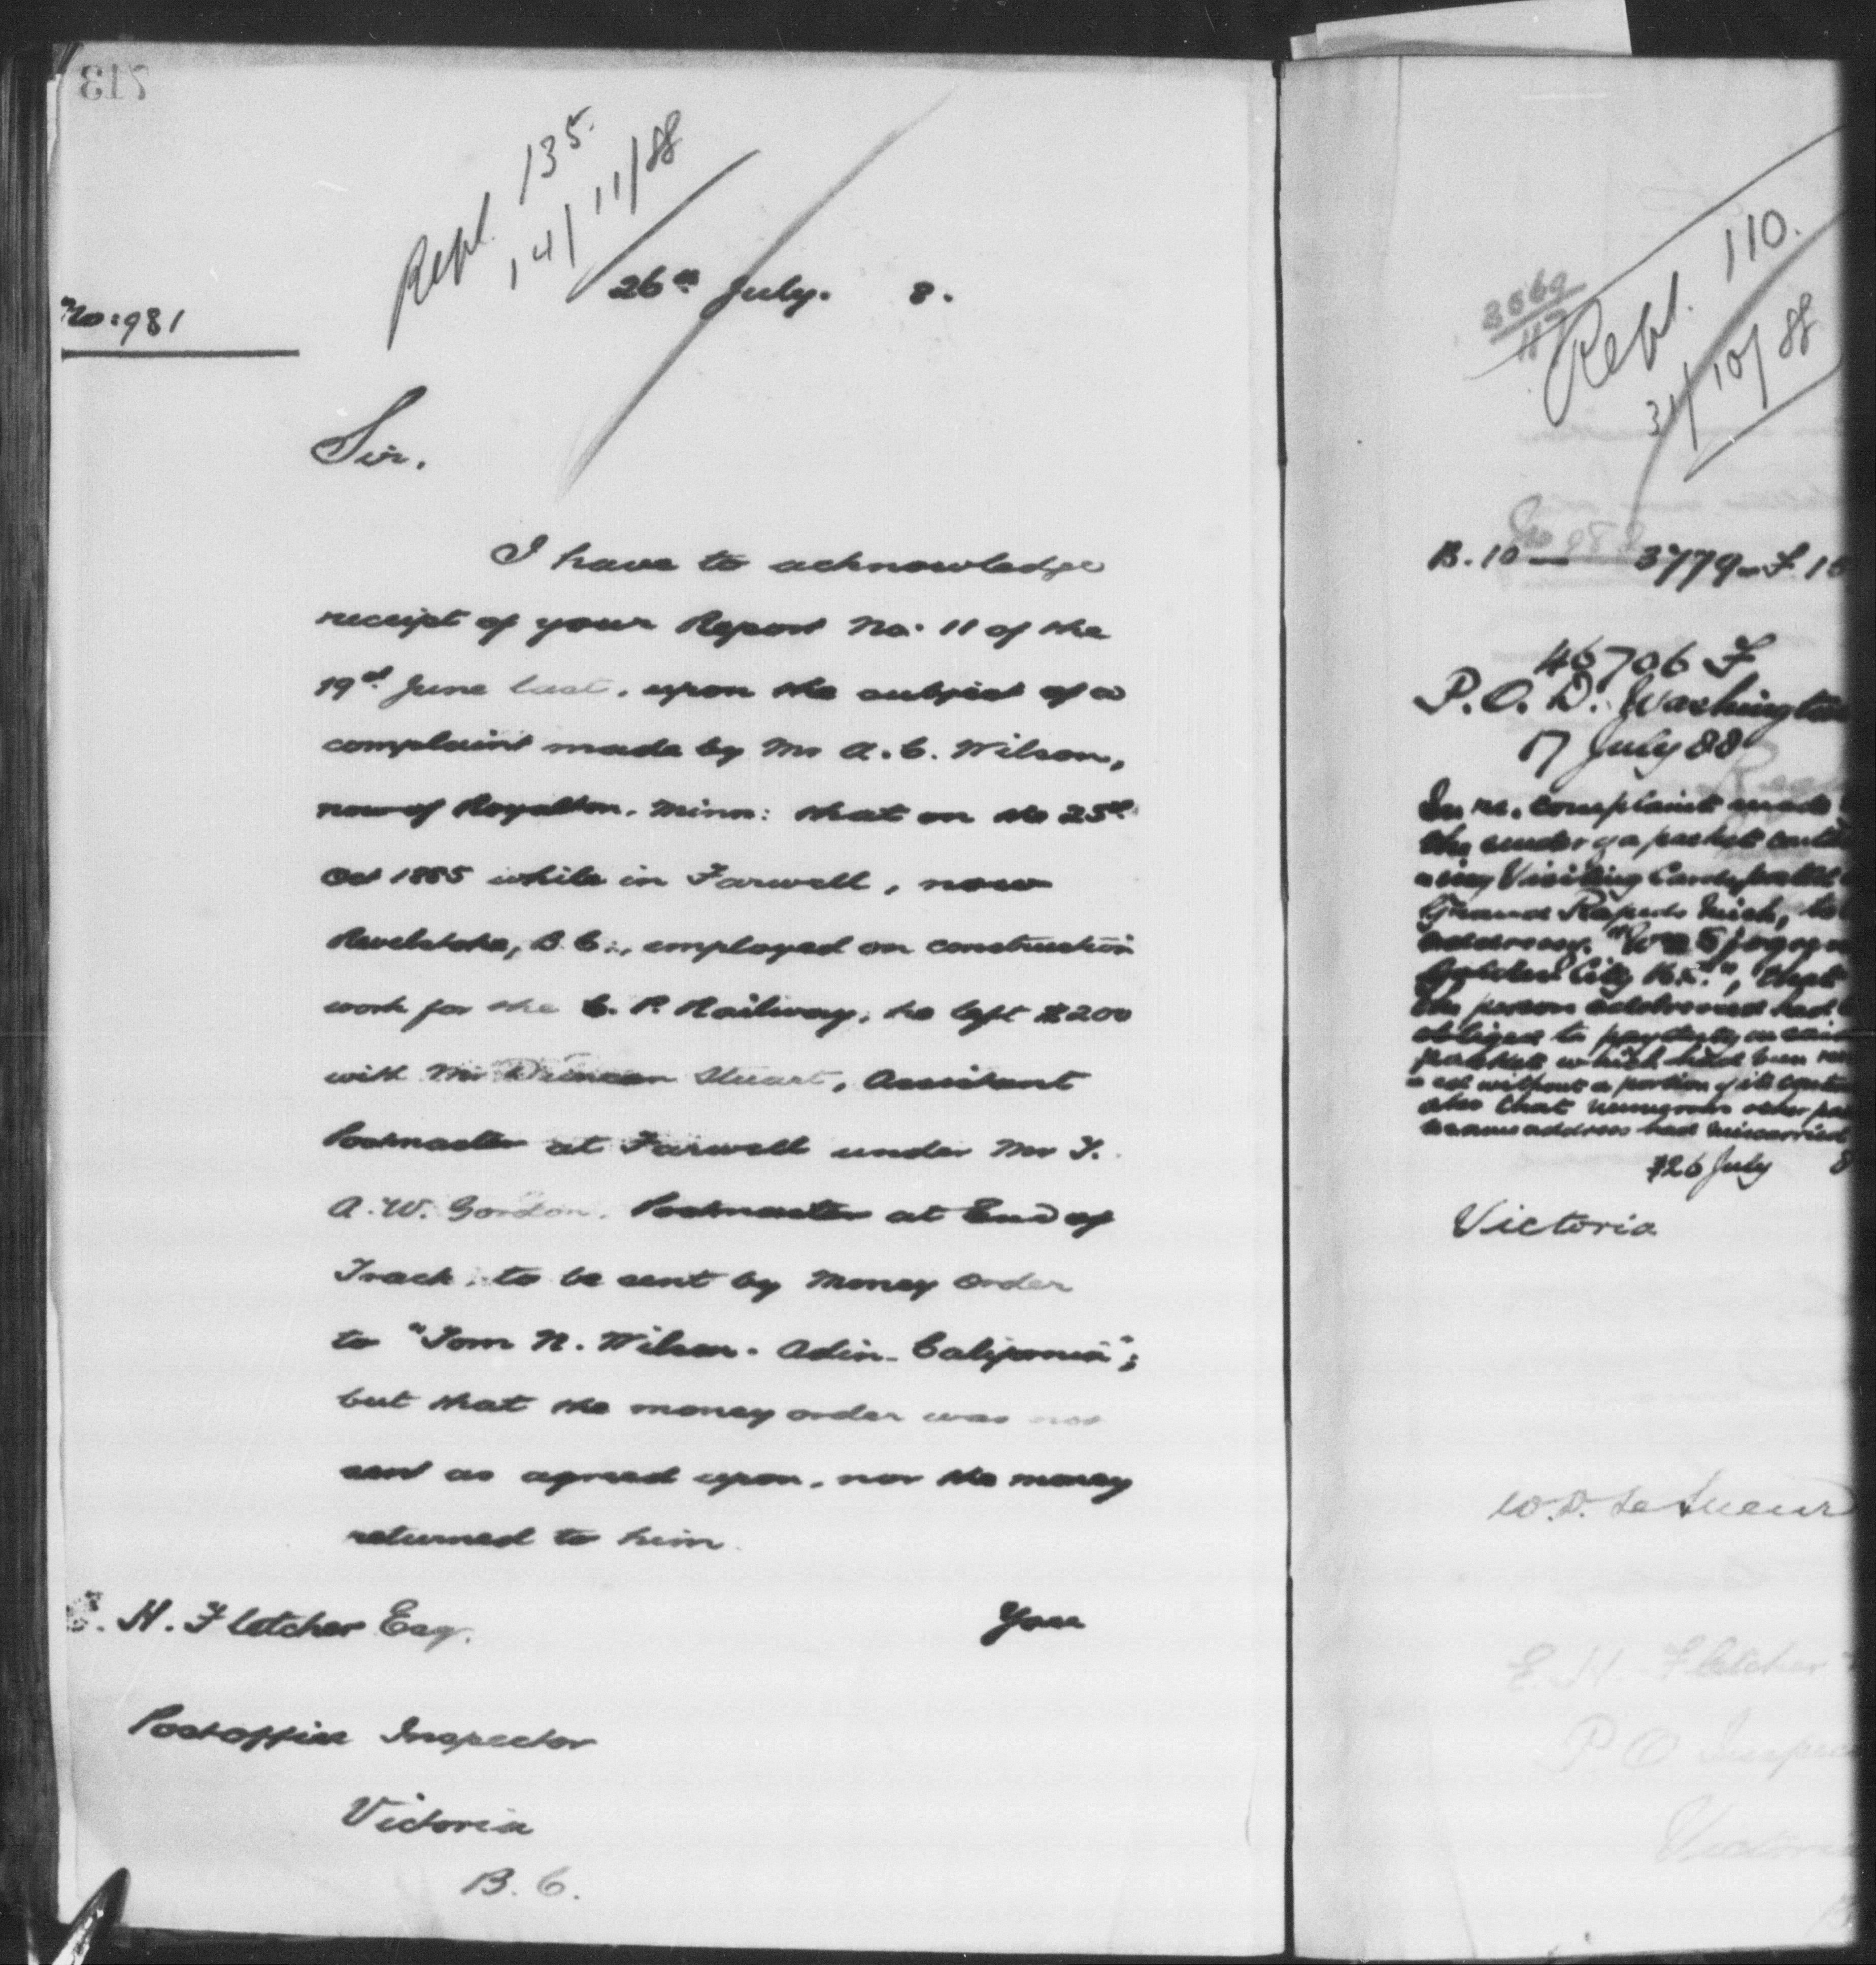 713
Repl. 135
14/11/88
26th July. 8.
No: 981
Sir.
I have to acknowledge
receipt of your Report No. 11 of the
19th June last, upon the subject of a
complaint made by Mr A. C. Wilson,
now of Royalton, Minn: that on the 25th
Oct 1885 while in Farwell, now
Revelstoke, B.C., employed on construction
work for the C. P. Railway, he left $200
with Mr Duncan Stuart, Assistant
Postmaster at Farwell under Mr
A. W. Gordon, Postmaster at End of
Track, to be sent by Money Order
to "Tom N. Wilson. Adin. California";
but that the money order was not
sent as agreed upon, nor the money
returned to him.
H. Fletcher Esq.
Your
Postoffice Inspector
Victoria
B. C.
Repl. 110.
31/10/88
B. 10 — 3779 - F. 15
46706 F
P. O. D. Washington
17 July 88
In re. complaint made
the sender of a packet
Visiting Cards
Grand Rapids Mich, to
address.
Golden City B.C.", that
the person addressed had
obliged to pay duty on said
packet which had been
without a portion of its
also that numerous other
address had miscarried
26 July 8
Victoria
W. D. LeSueur
E. H. Fletcher
P. O.
Victoria